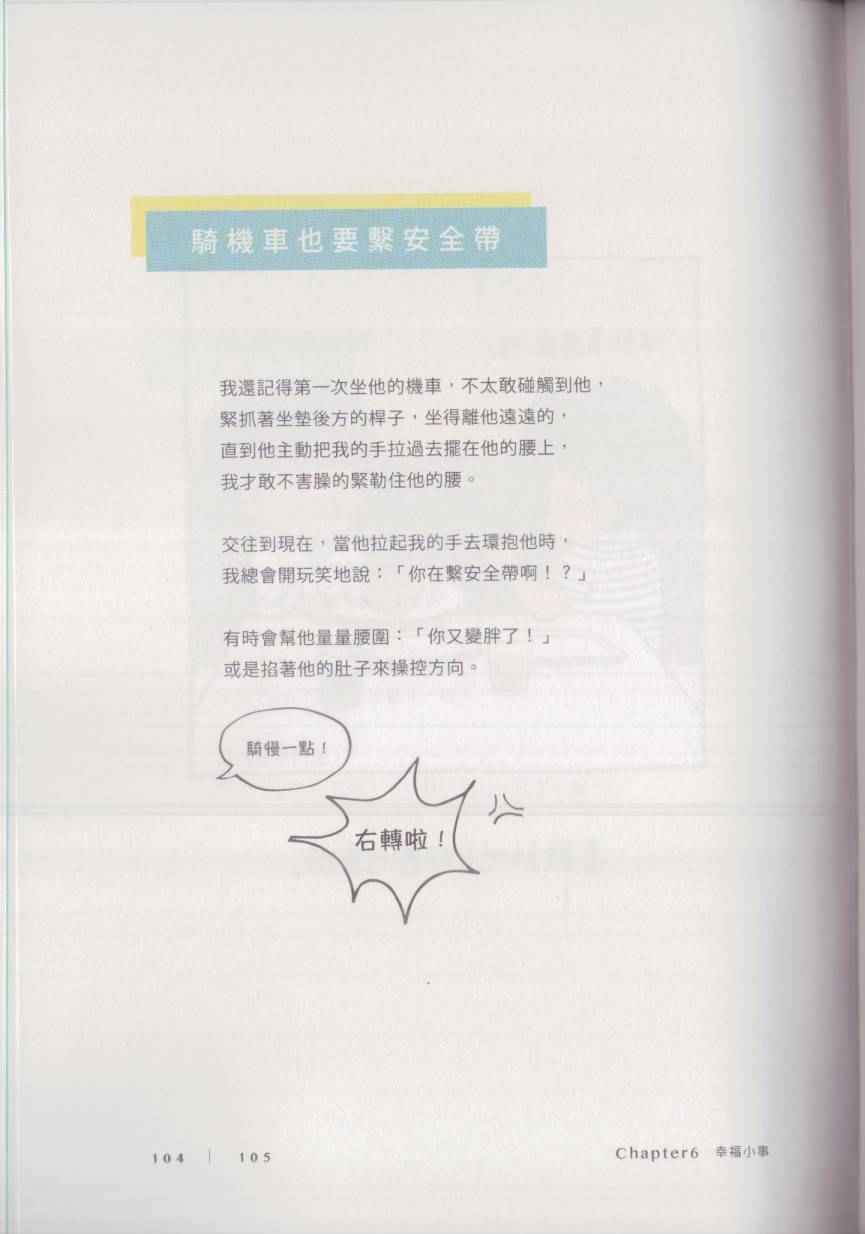 騎機車也要繫安全帶
我還記得第一次坐他的機車，不太敢碰觸到他，
緊抓著坐墊後方的桿子，坐得離他遠遠的，
直到他主動把我的手拉過去擺在他的腰上，
我才敢不害臊的緊勒住他的腰。
交往到現在，當他拉起我的手去環抱他時，
我總會開玩笑地說：「你在繫安全帶啊！？」
有時會幫他量量腰圍：「你又變胖了！」
或是掐著他的肚子來操控方向。
騎慢一點！
右轉啦！
104 | 105
Chapter6 幸福小事